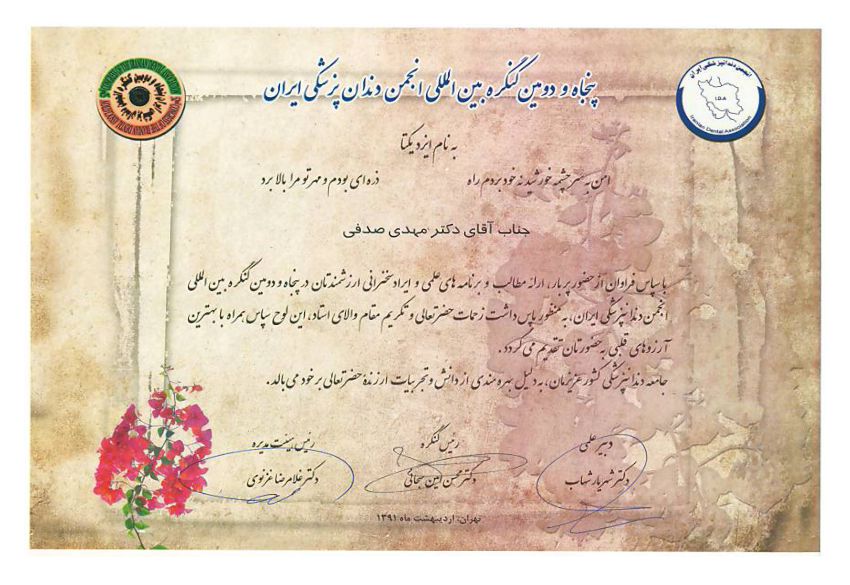 پنجاه و دومین کنگره بین المللی انجمن دندان پزشکی ایران
انجمن دندانپزشکی ایران
I.D.A
Iranian Dental Association
به نام ایزد یکتا
من به سرچشمه خورشید نه خود بردم راه ذره ای بودم و مهر تو مرا بالا برد
جناب آقای دکتر مهدی صدفی
با سپاس فراوان از حضور پربار، ارائه مطالب و برنامه های علمی و ایراد سخنرانی ارزشمندتان در پنجاه و دومین کنگره بین المللی
انجمن دندانپزشکی ایران، به منظور پاس داشت زحمات حضرتعالی و تکریم مقام والای استاد، این لوح سپاس همراه با بهترین
آرزوهای قلبی به حضورتان تقدیم می گردد.
جامعه دندانپزشکی کشور عزیزمان، به دلیل بهره مندی از دانش و تجربیات ارزنده حضرتعالی بر خود می بالد.
دبیر علمی رئیس کنگره رئیس هیئت مدیره
دکتر شهریار شهاب دکتر محسن امین سبحانی دکتر غلامرضا غزنوی
تهران: اردیبهشت ماه ۱۳۹۱